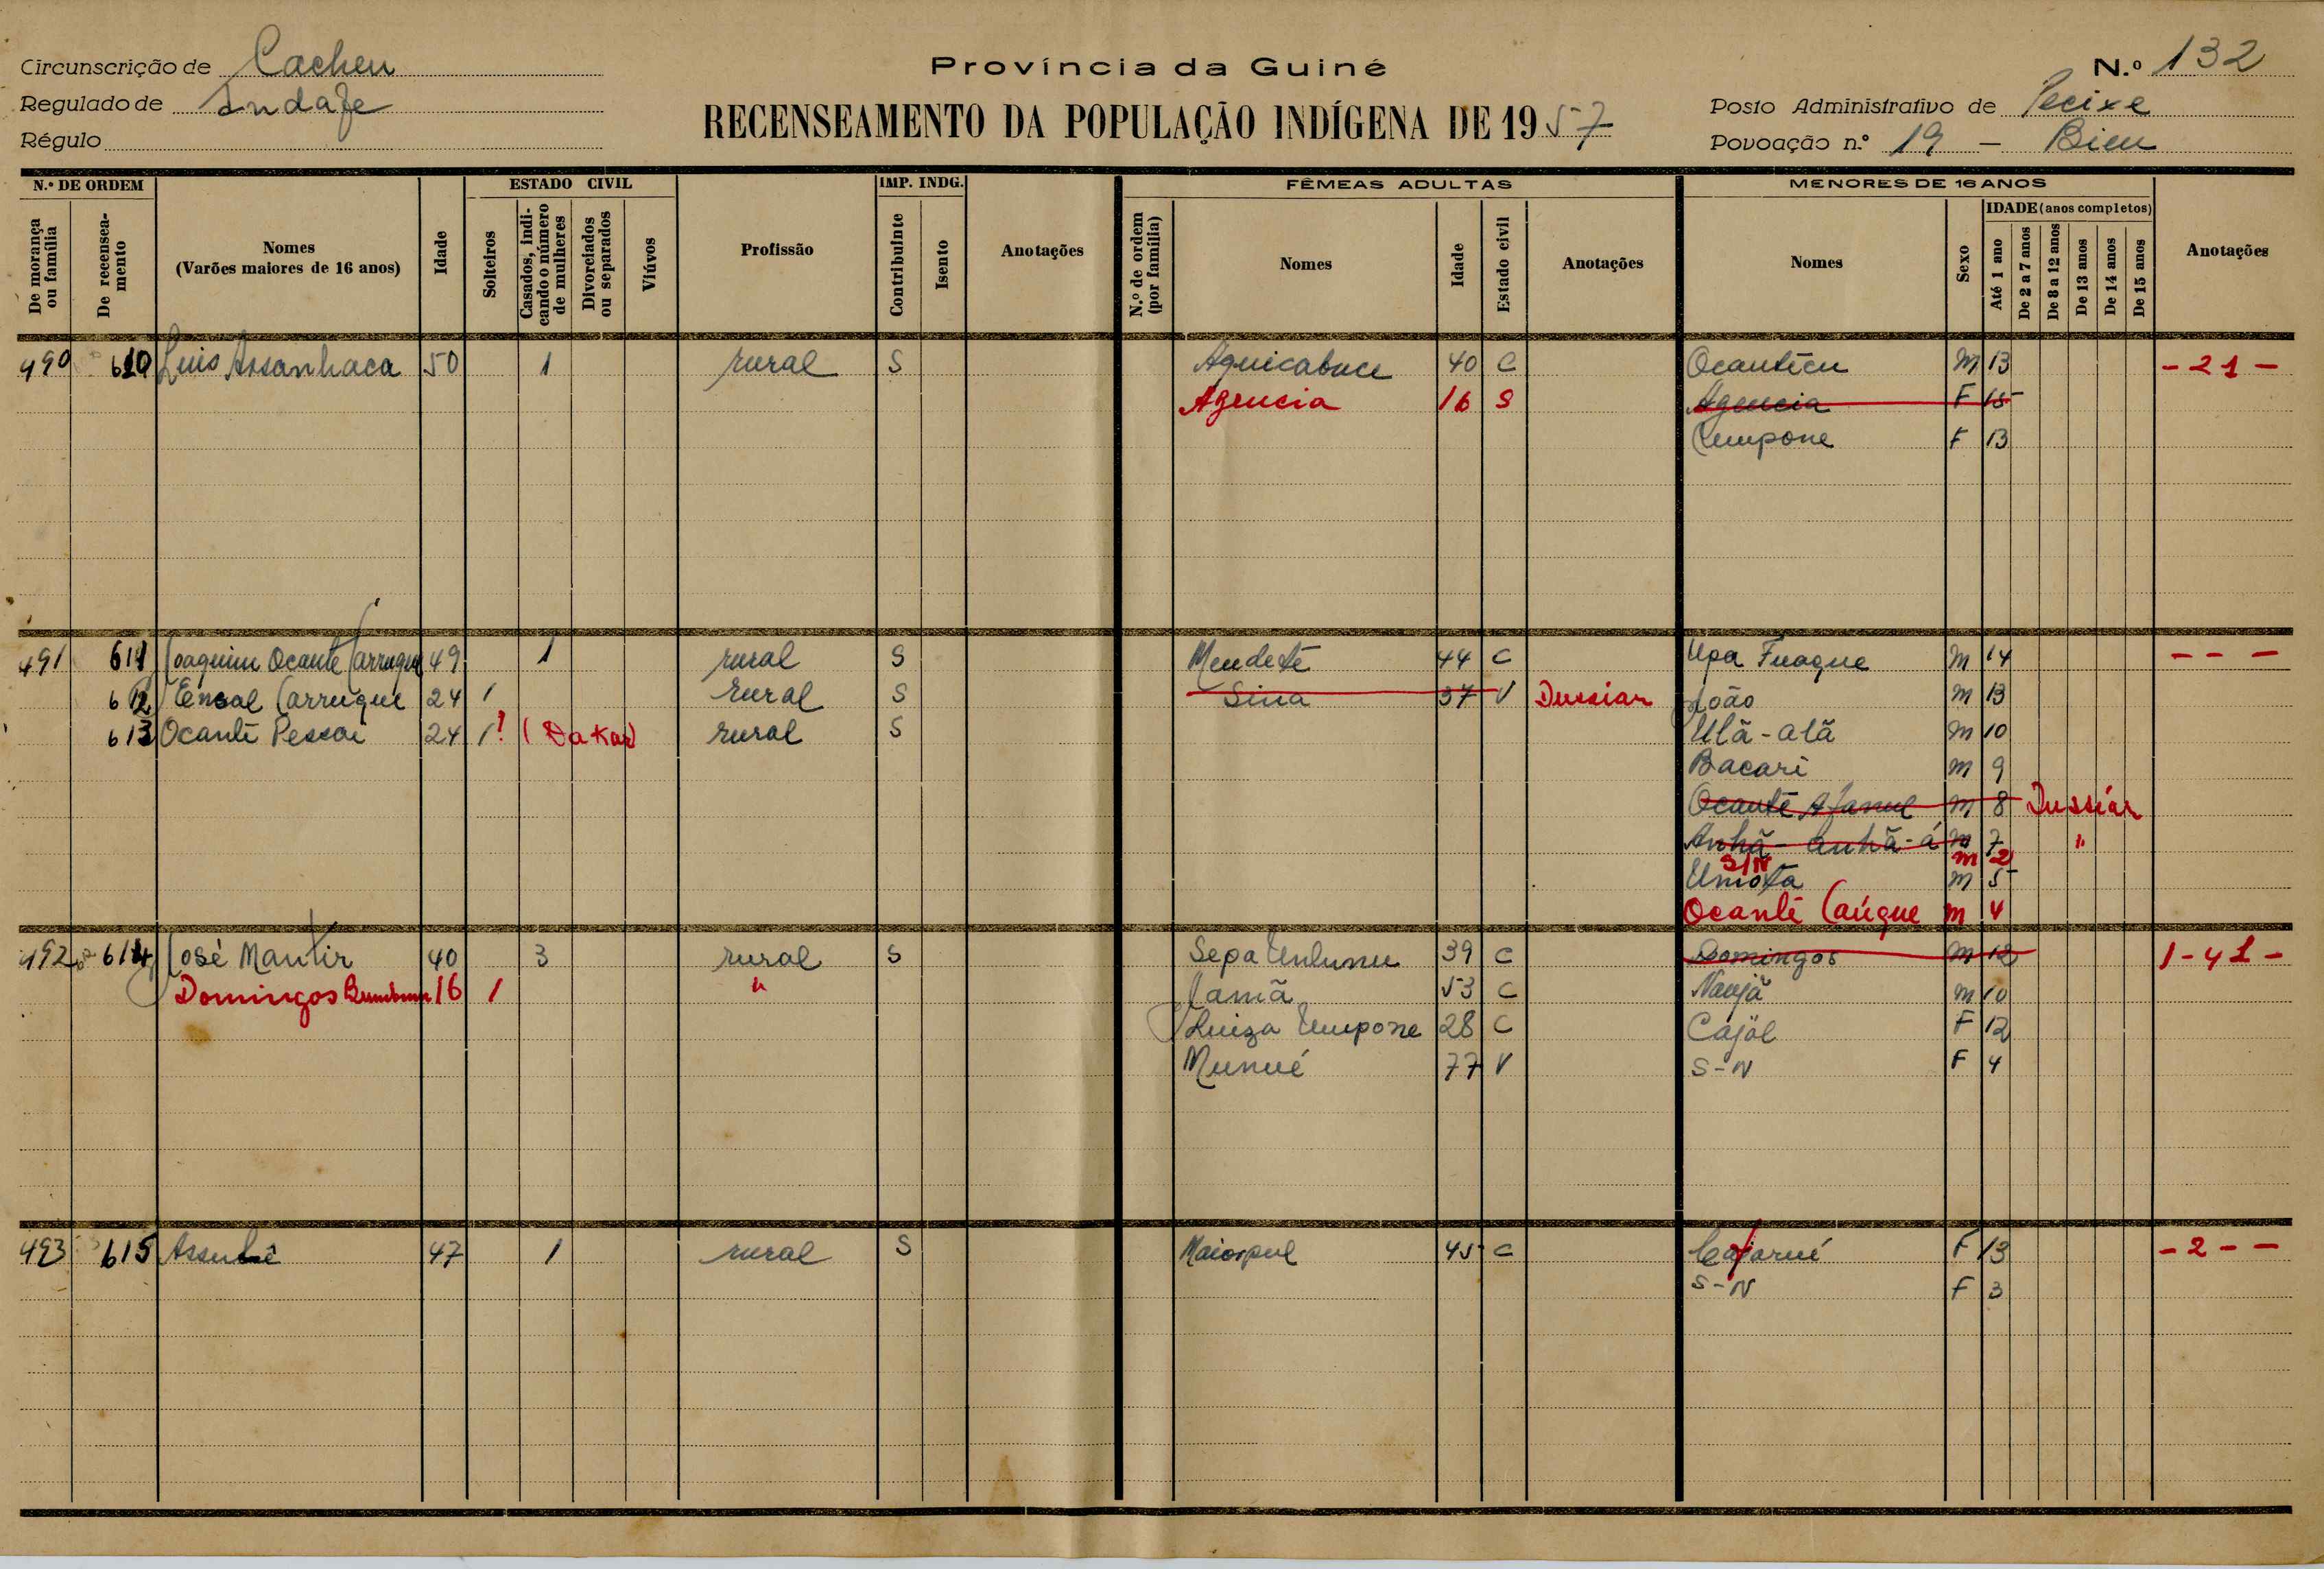 Circunscrição de Cacheu
Regulado de Indafe
Régulo
Província da Guiné
RECENSEAMENTO DA POPULAÇÃO INDÍGENA DE 1957
N.º 132
Posto Administrativo de Pecixe
Povoação n.º 19 - Bieu
N.º DE ORDEM
De morança ou família
De recenseamento
Nomes
(Varões maiores de 16 anos)
Idade
ESTADO CIVIL
Solteiros
Casados, indicando o número de mulheres
Divorciados ou separados
Viúvos
Profissão
IMP. INDG.
Contribuinte
Isento
Anotações
FÊMEAS ADULTAS
N.º de ordem (por família)
Nomes
Idade
Estado civil
Anotações
MENORES DE 16 ANOS
Nomes
Sexo
IDADE (anos completos)
Até 1 ano
De 2 a 7 anos
De 8 a 12 anos
De 13 anos
De 14 anos
De 15 anos
Anotações
490 610 Luis Assanhaca 50 1 rural S Aguicabuce 40 C Ocantécu M 13 - 21 -
Agencia 16 S Agencia F 15
Empone F 13
491 611 Joaquim Ocante Carruque 49 1 rural S Mendeté 44 C Upa Fuaque M 14 - - -
612 Ensal Carruque 24 1 rural S Sina 37 V Dussiar João M 13
613 Ocanté Pessai 24 1! (Dakar) rural S Utã-atã M 10
Bacari M 9
Ocanté Afanul M 8 Dussiár
Anhã-anhã-á M 7 "
S/N m 2
Umota M 5
Ocanté Caúque m V
492 614 José Mantir 40 3 rural S Sepa Unlunu 39 C Domingos M 12 1-41-
Domingos 16 1 " Jamã 53 C Naujã M 10
Luiza Empone 28 C Cajöl F 12
Munué 77 V S-N F 4
493 615 Assubê 47 1 rural S Maiospul 45 C Cajarué F 13 - 2 - -
S-N F 3